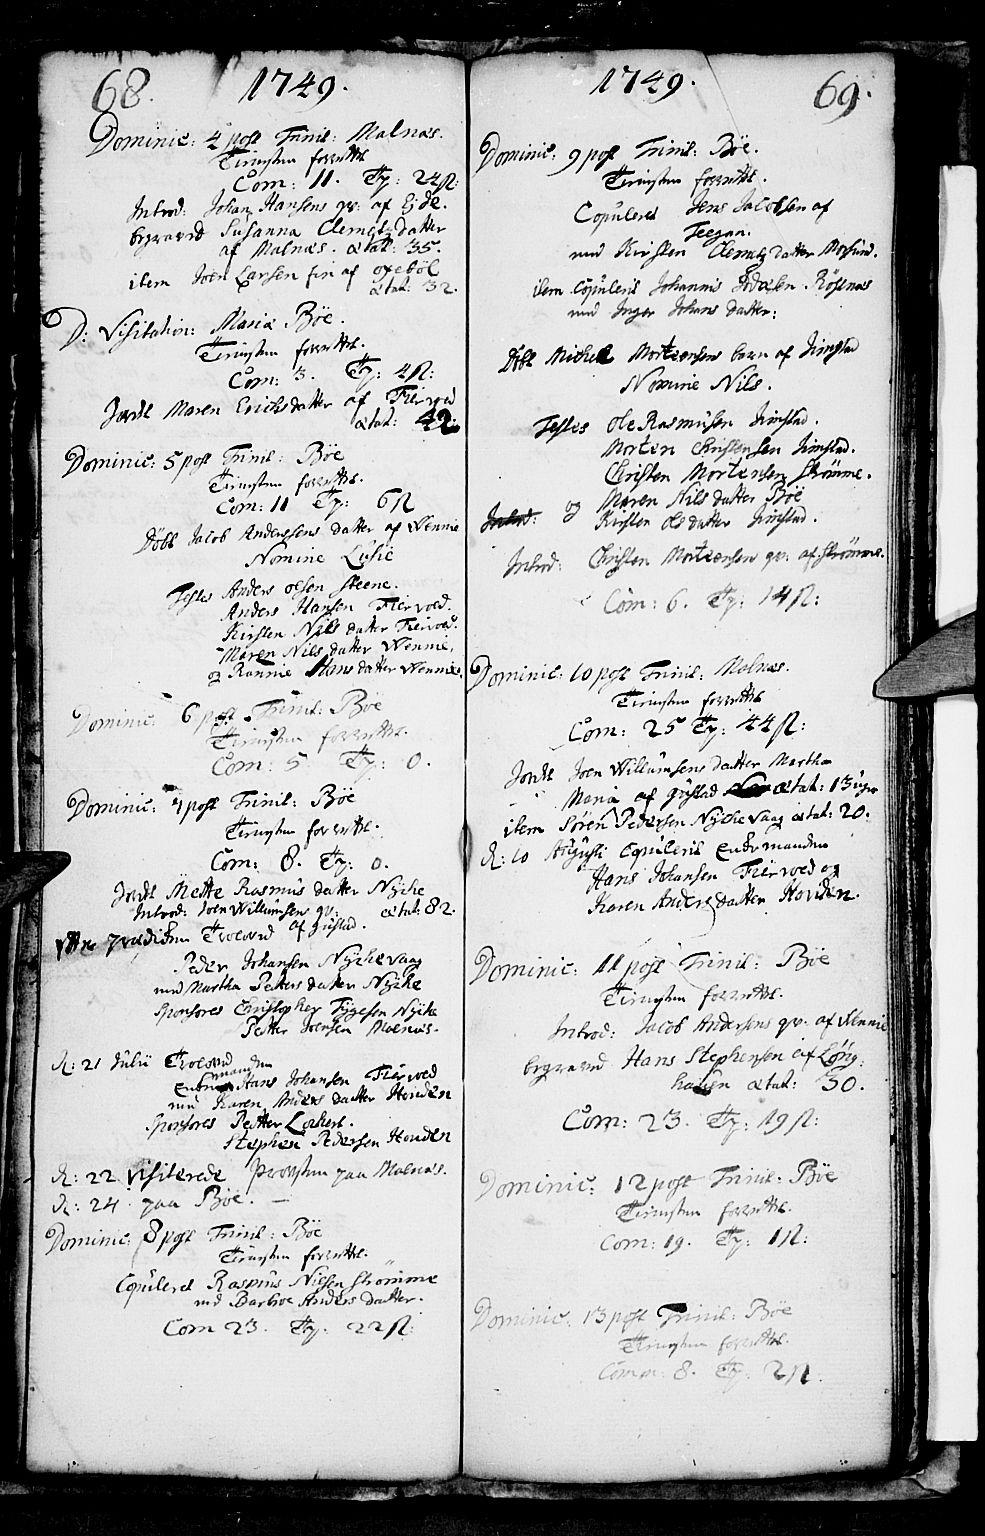 68. 1749.
Dominic: 4 post Trinit: Malnæs.
Tienesten forrettet
Com: 11. Ty: 24 ß:
Introd: Johan Hansens qv: af Eide.
begraved Susanna Clemetz datter
af Malnæs. ætat: 35.
item Joen Larsen fin af oxebøl
ætat: 32.
D: Visitation: Maria Böe.
Tienesten forrettet.
Com: 3. Ty: 4 ß:
Jordt Maren Erichsdatter af Fiervoed
ætat: 42.
Dominic: 5 post Trinit: Böe
Tienesten forrettet.
Com: 11 Ty: 6 ß
Döbt Jacob Anderssens datter af Wennie
Nomine Lusie
Testes Anders olsen Steene.
Anders Hansen Fiervoed.
Kirsten Nils datter Fiervoed.
Maren Nils datter Wennie.
og Rannie Hans datter Wennie.
Dominic: 6 post Trinit: Böe
Tienesten forrettet.
Com: 5 Ty: 0.
Dominic: 7 post Trinit: Böe
Tienesten forrettet.
Com: 8. Ty: 0.
Jordt Mette Rasmus datter Nÿcke
Introd: Joen Willumsen qv: ætat: 82.
af Gustad.
Troloved
Peder Johansen Nyckevaag
med Martha Petters datter Nycke
Sponsores Christopher Tygesen Nycke
Petter Joensen Malnæs.
d: 21 Julii Troloved
Enkemanden Hans Johansen Fiervoed
med Karen Anders datter Houden
Sponsores Petter Lockert.
Stephen Pedersen Houden
d: 22 Visiterede Provsten paa Malnæs.
d: 24 paa Böe.
Dominic: 8 post Trinit: Böe
Tienesten forrettet.
Copuleret Rasmus Nilsen Strömme
med Barbroe Anders datter.
Com 23. Ty: 22 ß:
1749. 69.
Dominic: 9 post Trinit: Böe.
Tienesten forrettet.
Copuleret Jens Jacobsen af
Teegan.
med Kirsten Clemetz datter
item Copuleret Johannis Rösnæs
med Inger Johans datter:
Döbt Michel Mortensens barn af Jimstad
Nomine Nils.
Testes Ole Rasmusen Jimstad.
Morten Christensen Jimstad.
Christen Mortensen Strömme.
Maren Nils datter Böe
Introd: og Kirsten Ols datter Jimstad.
Introd: Christen Mortensens qv: af Strömme.
Com: 6. Ty: 14 ß:
Dominic: 10 post Trinit: Malnæs.
Tienesten forrettet
Com: 25 Ty: 44 ß:
Jordt Joen Willumsens datter Martha
Maria af Gustad ætat: 13 uger
item Sören Pedersen Nyckevaag ætat: 20.
d: 10 Augusti Copuleret Enkemanden
Hans Johansen Fiervoed og
Karen Anders datter Houden.
Dominic: 11 post Trinit: Böe
Tienesten forrettet.
Introd: Jacob Andersens qv: af Wennie
begraved Hans Stephensen af Löng:
hausen ætat: 50.
Com: 23. Ty: 19 ß:
Dominic: 12 post Trinit: Böe
Tienesten forrettet.
Com: 19. Ty: 1 ß:
Dominic: 13 post Trinit: Böe
Tienesten forrettet.
Comm: 8. Ty: 2 ß.